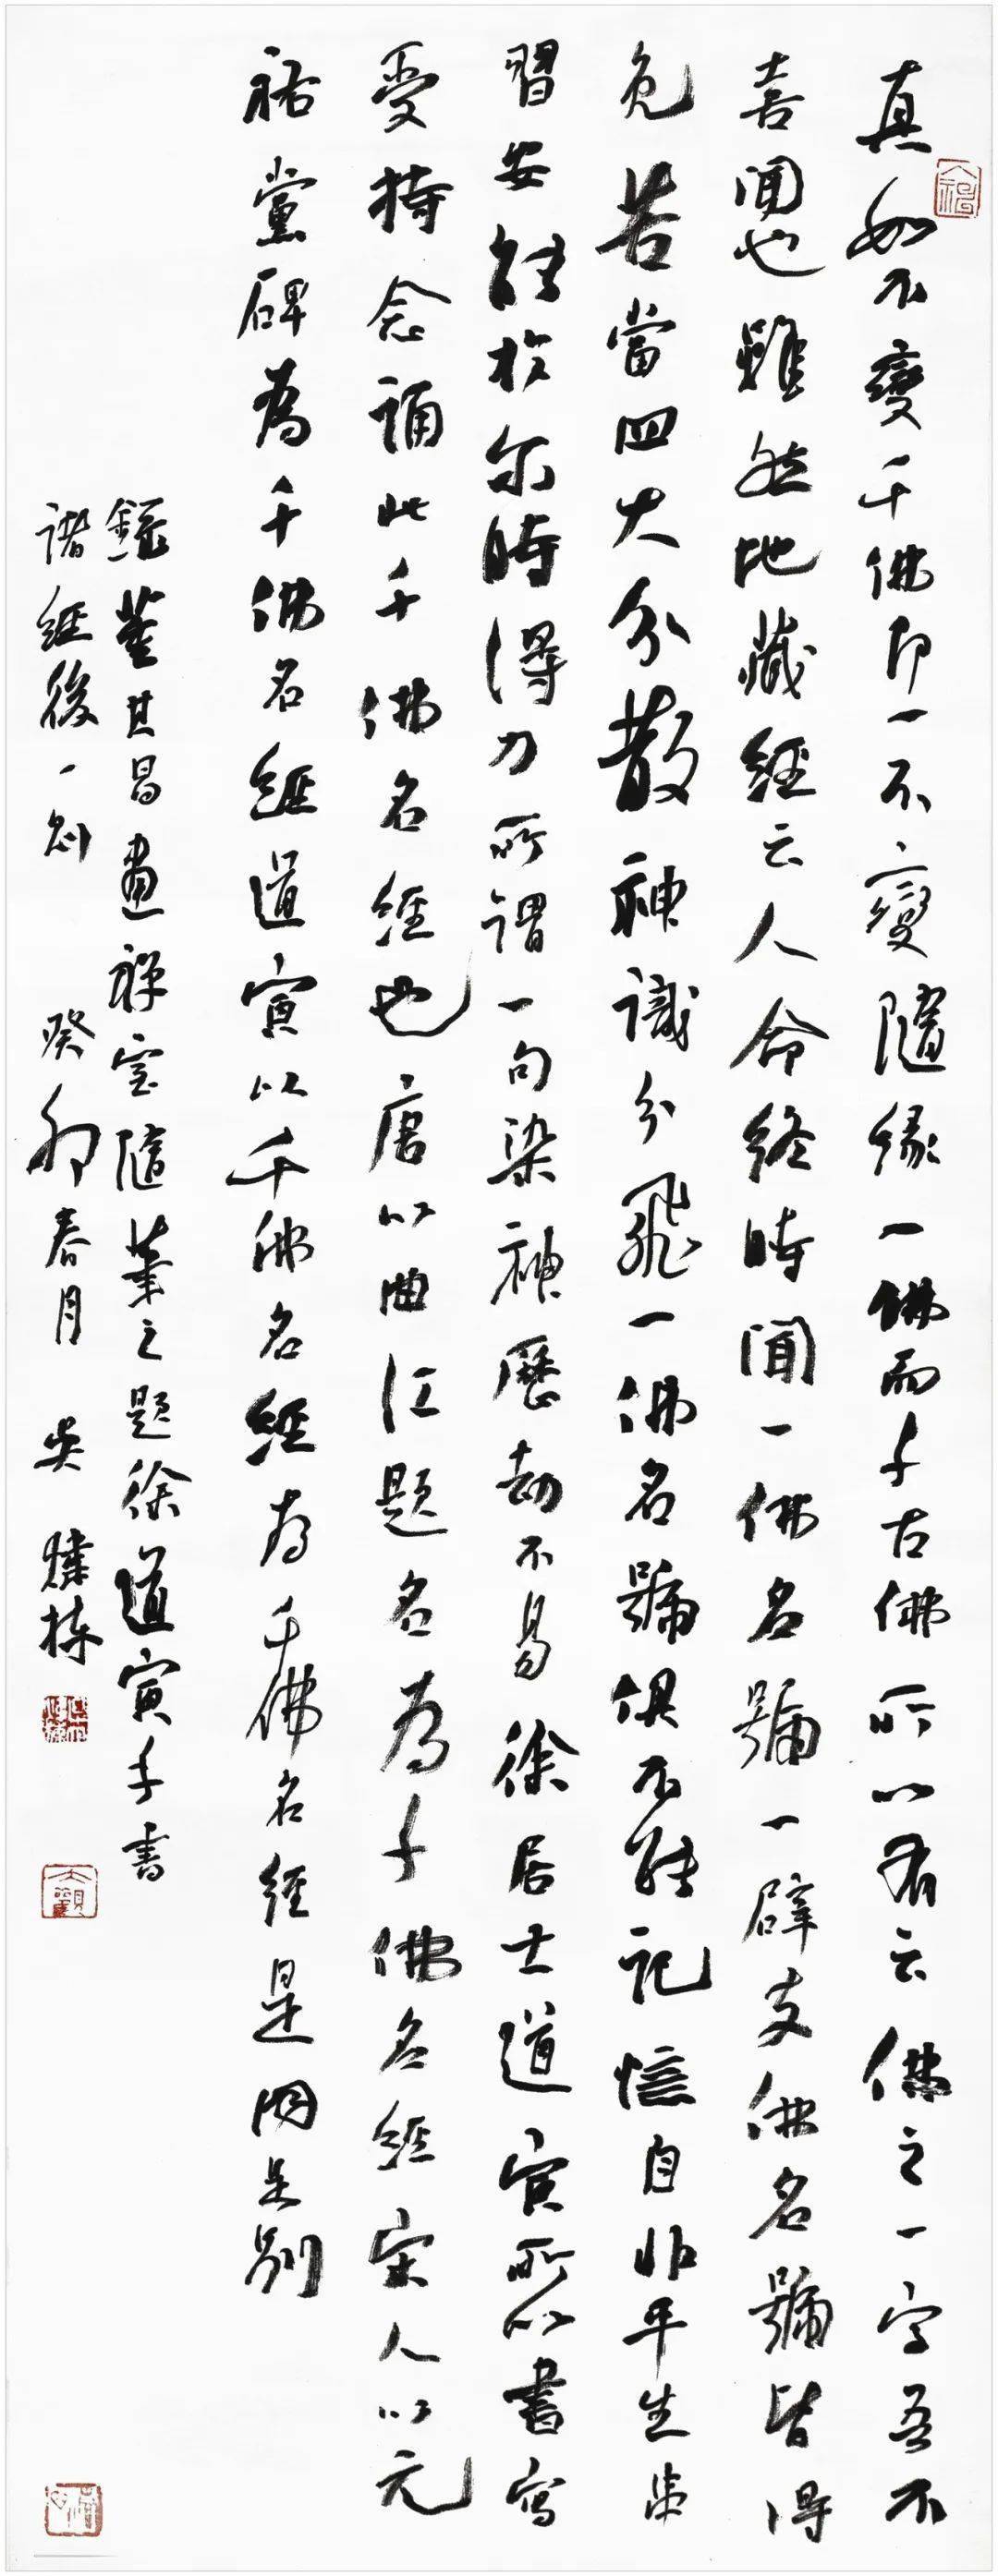 真如不變千佛即一不變隨緣一佛而千古佛所以有云佛之一字吾不
喜聞也雖然地藏經云人命終時聞一佛名號一辟支佛名號皆得
免苦當四大分散神識分飛一佛名號俱不能記憶自非平生串
習安能於尔時得力所謂一句染神歷劫不易徐居士道寅所以書寫
受持念誦此千佛名經也唐以曲江題名為千佛名經宋人以元
祐黨碑為千佛名經道寅以千佛名經為千佛名經是同是別
錄董其昌畫禪室隨筆之題徐道寅手書
諸經後一則 癸卯春月 吳 棟
大觀